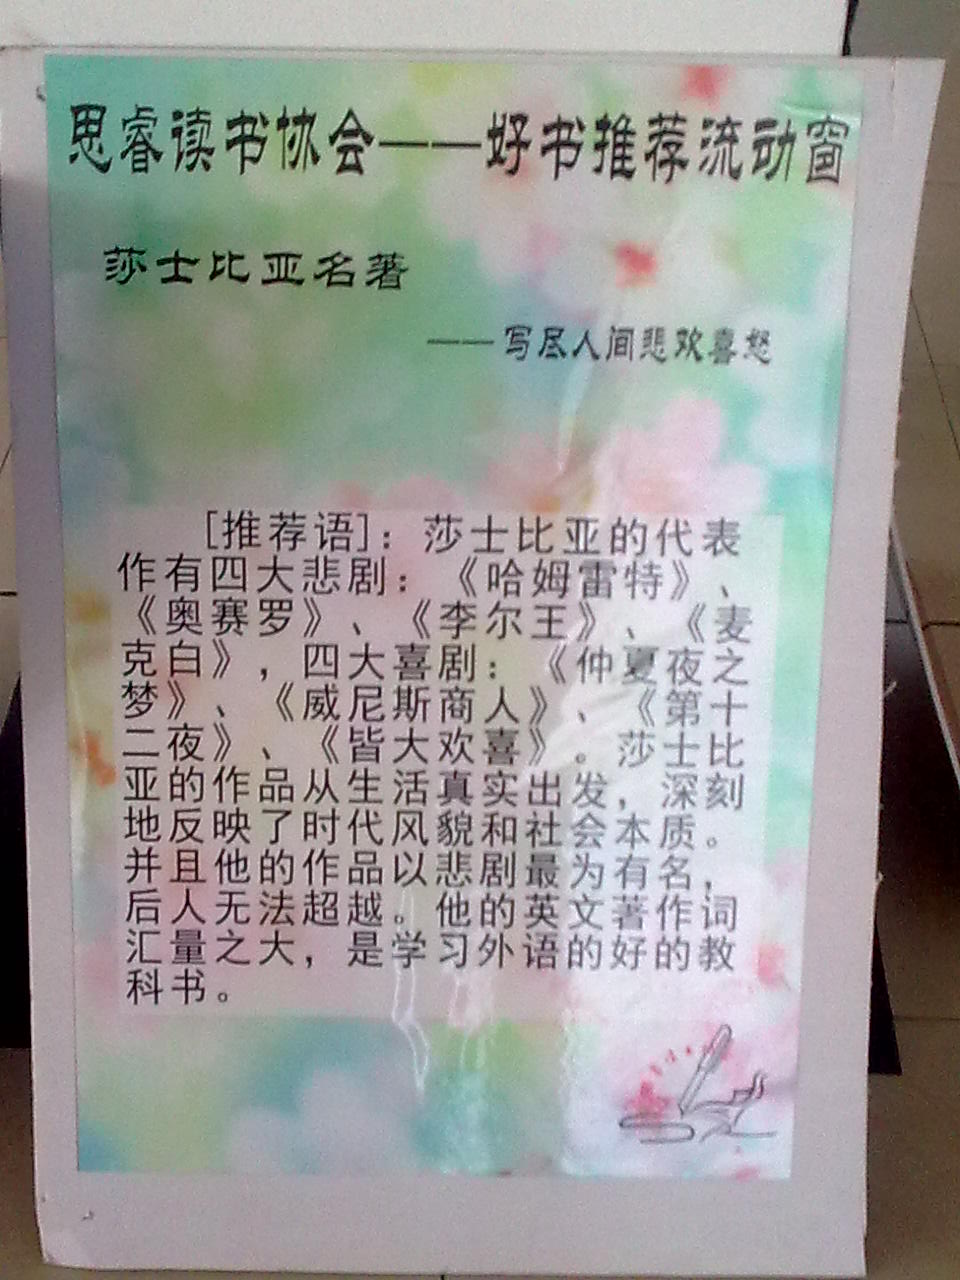 思睿读书协会——好书推荐流动窗
莎士比亚名著
——写尽人间悲欢喜怒
[推荐语]：莎士比亚的代表
作有四大悲剧：《哈姆雷特》、
《奥赛罗》、《李尔王》、《麦
克白》，四大喜剧：《仲夏夜之
梦》、《威尼斯商人》、《第十
二夜》、《皆大欢喜》。莎士比
亚的作品从生活真实出发，深刻
地反映了时代风貌和社会本质。
并且他的作品以悲剧最为有名，
后人无法超越。他的英文著作词
汇量之大，是学习外语的好的教
科书。